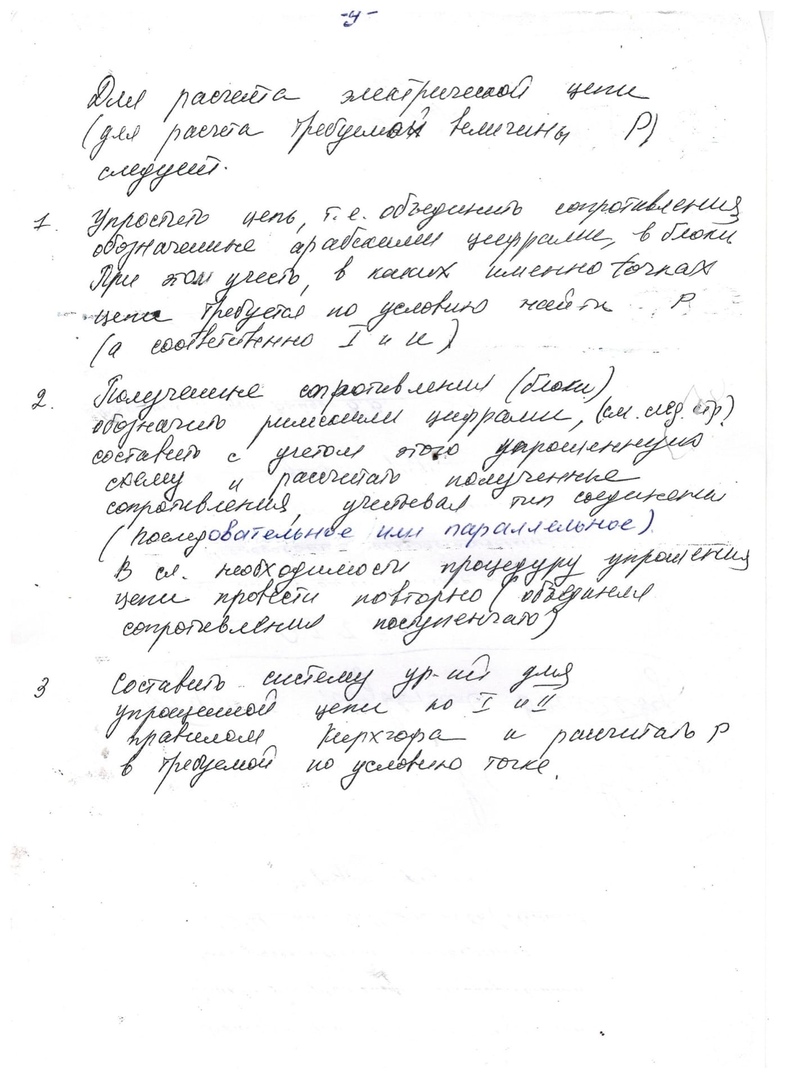 -4-
Для расчета электрической цепи
(для расчета требуемой величины P)
следует.
1. Упростить цепь, т.е. объединить сопротивления
обозначенные арабскими цифрами, в блоки
При этом учесть, в каких именно точках
цепи требуется по условию найти P
(а соответственно I и U)
2. Полученные сопротивления (блоки)
обозначить римскими цифрами, (см. след. стр)
составить с учетом этого упрощенную
схему и рассчитать полученные
сопротивления, учитывая тип соединения
(последовательное или параллельное).
В сл. необходимости процедуру упрощения
цепи провести повторно (объединяя
сопротивления поступенчато)
3 Составить систему ур-ий для
упрощенной цепи по I и II
правилам Кирхгофа и рассчитать P
в требуемой по условию точке.